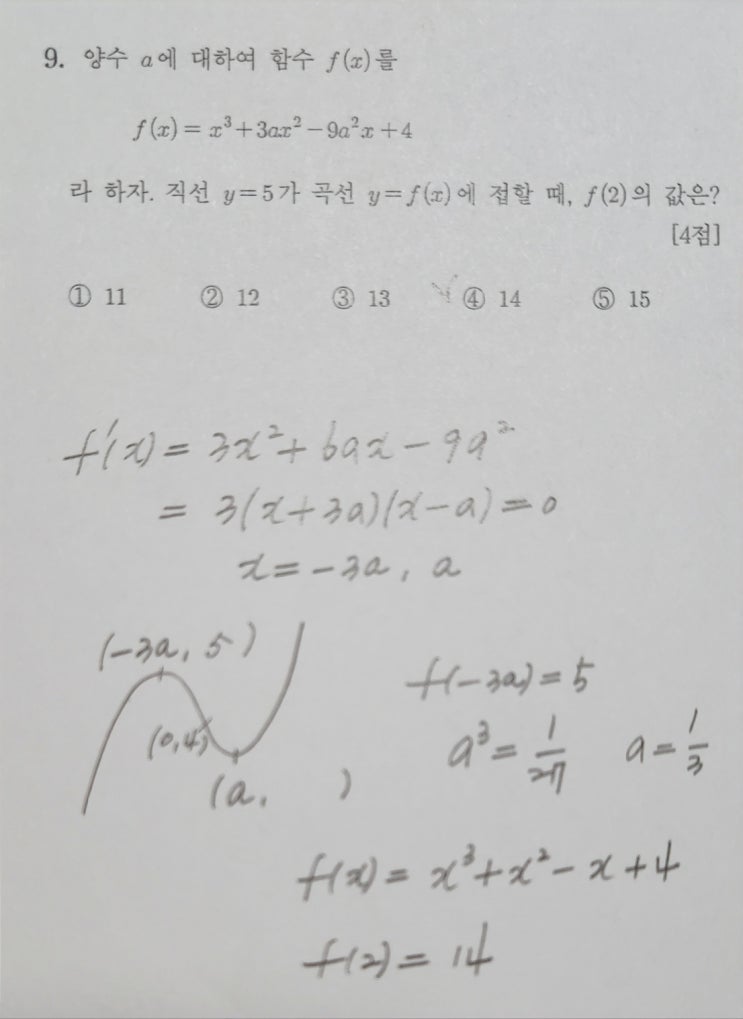 9. 양수 a에 대하여 함수 f(x)를
f(x)=x³+3ax²-9a²x+4
라 하자. 직선 y=5가 곡선 y=f(x)에 접할 때, f(2)의 값은?
[4점]
① 11 ② 12 ③ 13 ④ 14 ⑤ 15
f'(x)=3x²+6ax-9a²
=3(x+3a)(x-a)=0
x=-3a, a
(-3a, 5)
(0,4)
(a, )
f(-3a)=5
a³=1/27 a=1/3
f(x)=x³+x²-x+4
f(2)=14